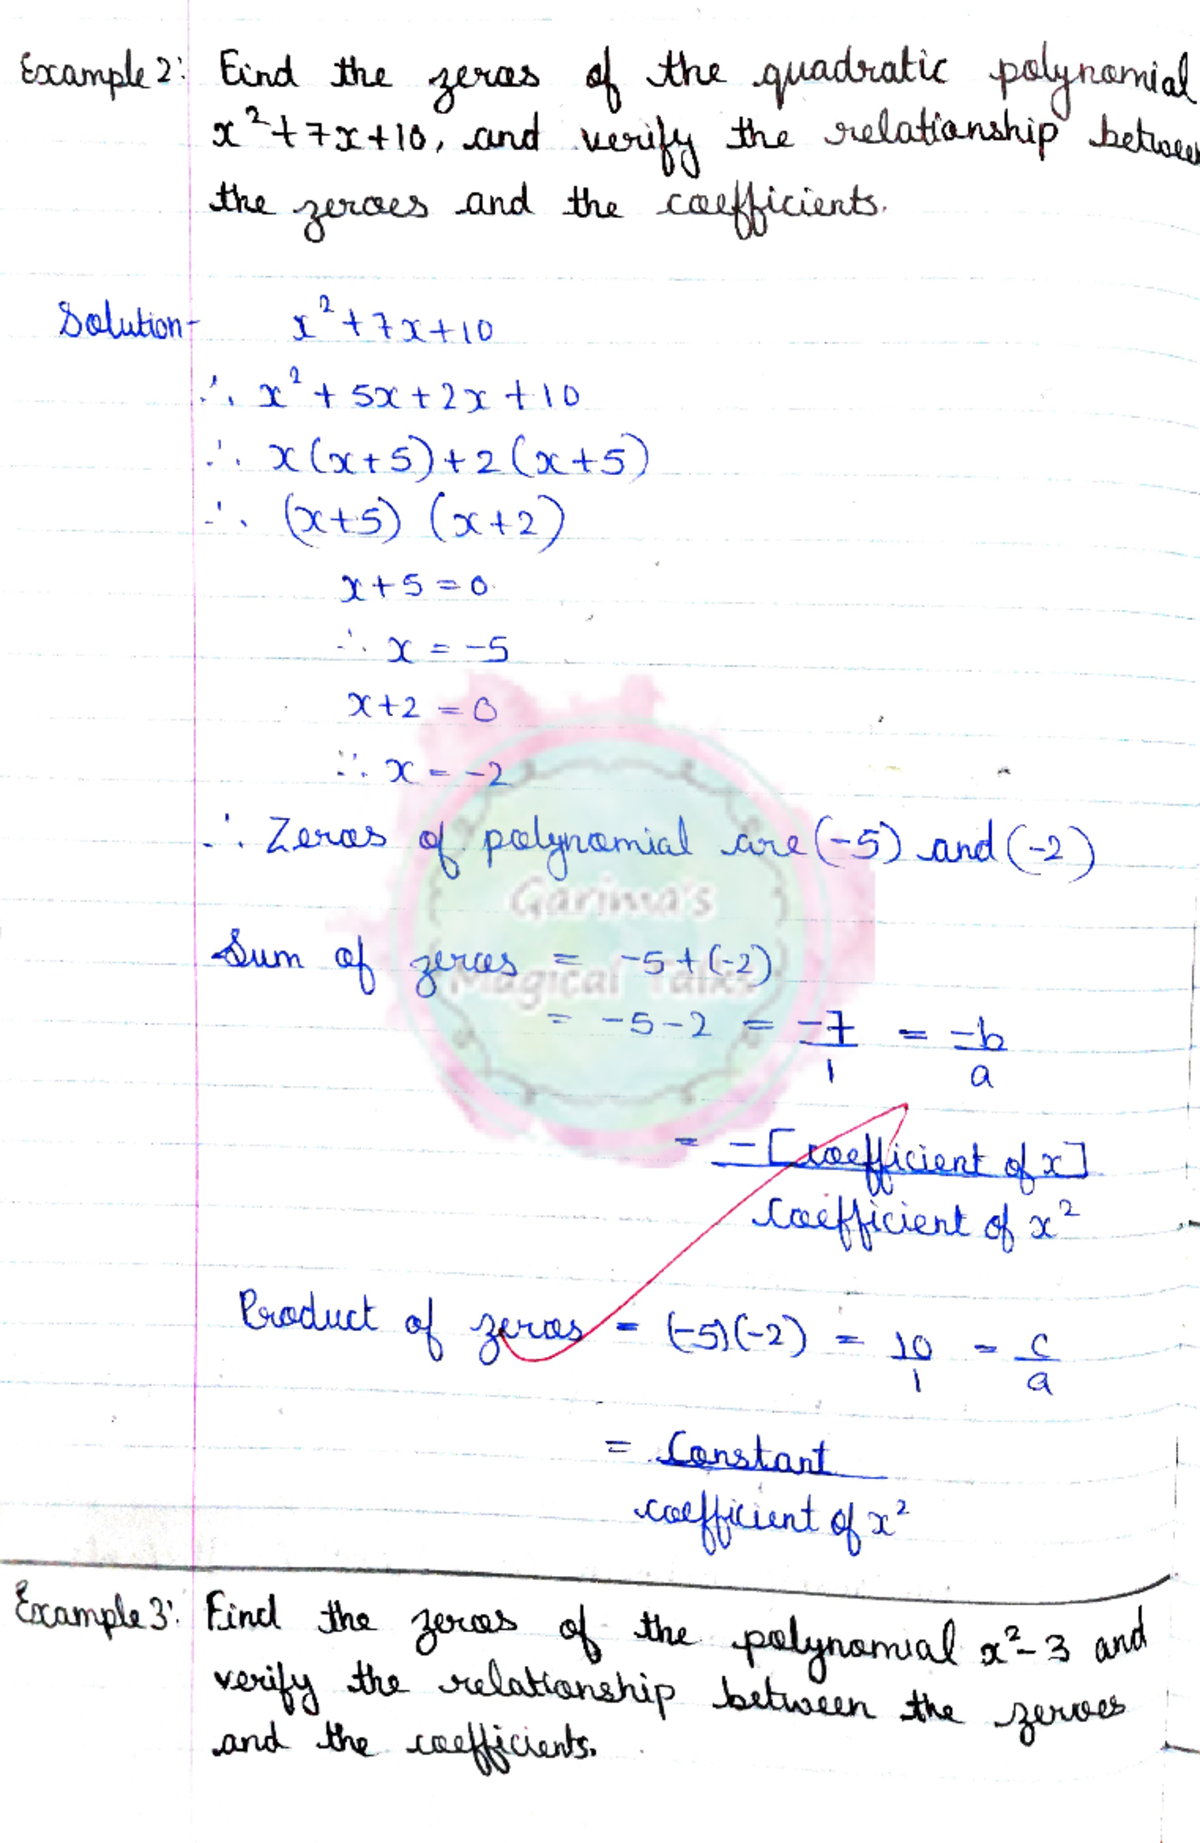 Example 2: Find the zeros of the quadratic polynomial
x²+7x+10, and verify the relationship between
the zeroes and the coefficients.
Solution- x²+7x+10
∴ x²+5x+2x+10
∴ x(x+5)+2(x+5)
∴ (x+5) (x+2)
x+5=0
∴ x = -5
x+2 = 0
∴ x = -2
∴ Zeros of polynomial are (-5) and (-2)
Garima's
Sum of zeros = -5+(-2)
Magical Talks
= -5-2 = -7/1 = -b/a
= -[coefficient of x]
coefficient of x²
Product of zeros = (-5)(-2) = 10/1 = c/a
= Constant
coefficient of x²
Example 3: Find the zeros of the polynomial x²-3 and
verify the relationship between the zeroes
and the coefficients.